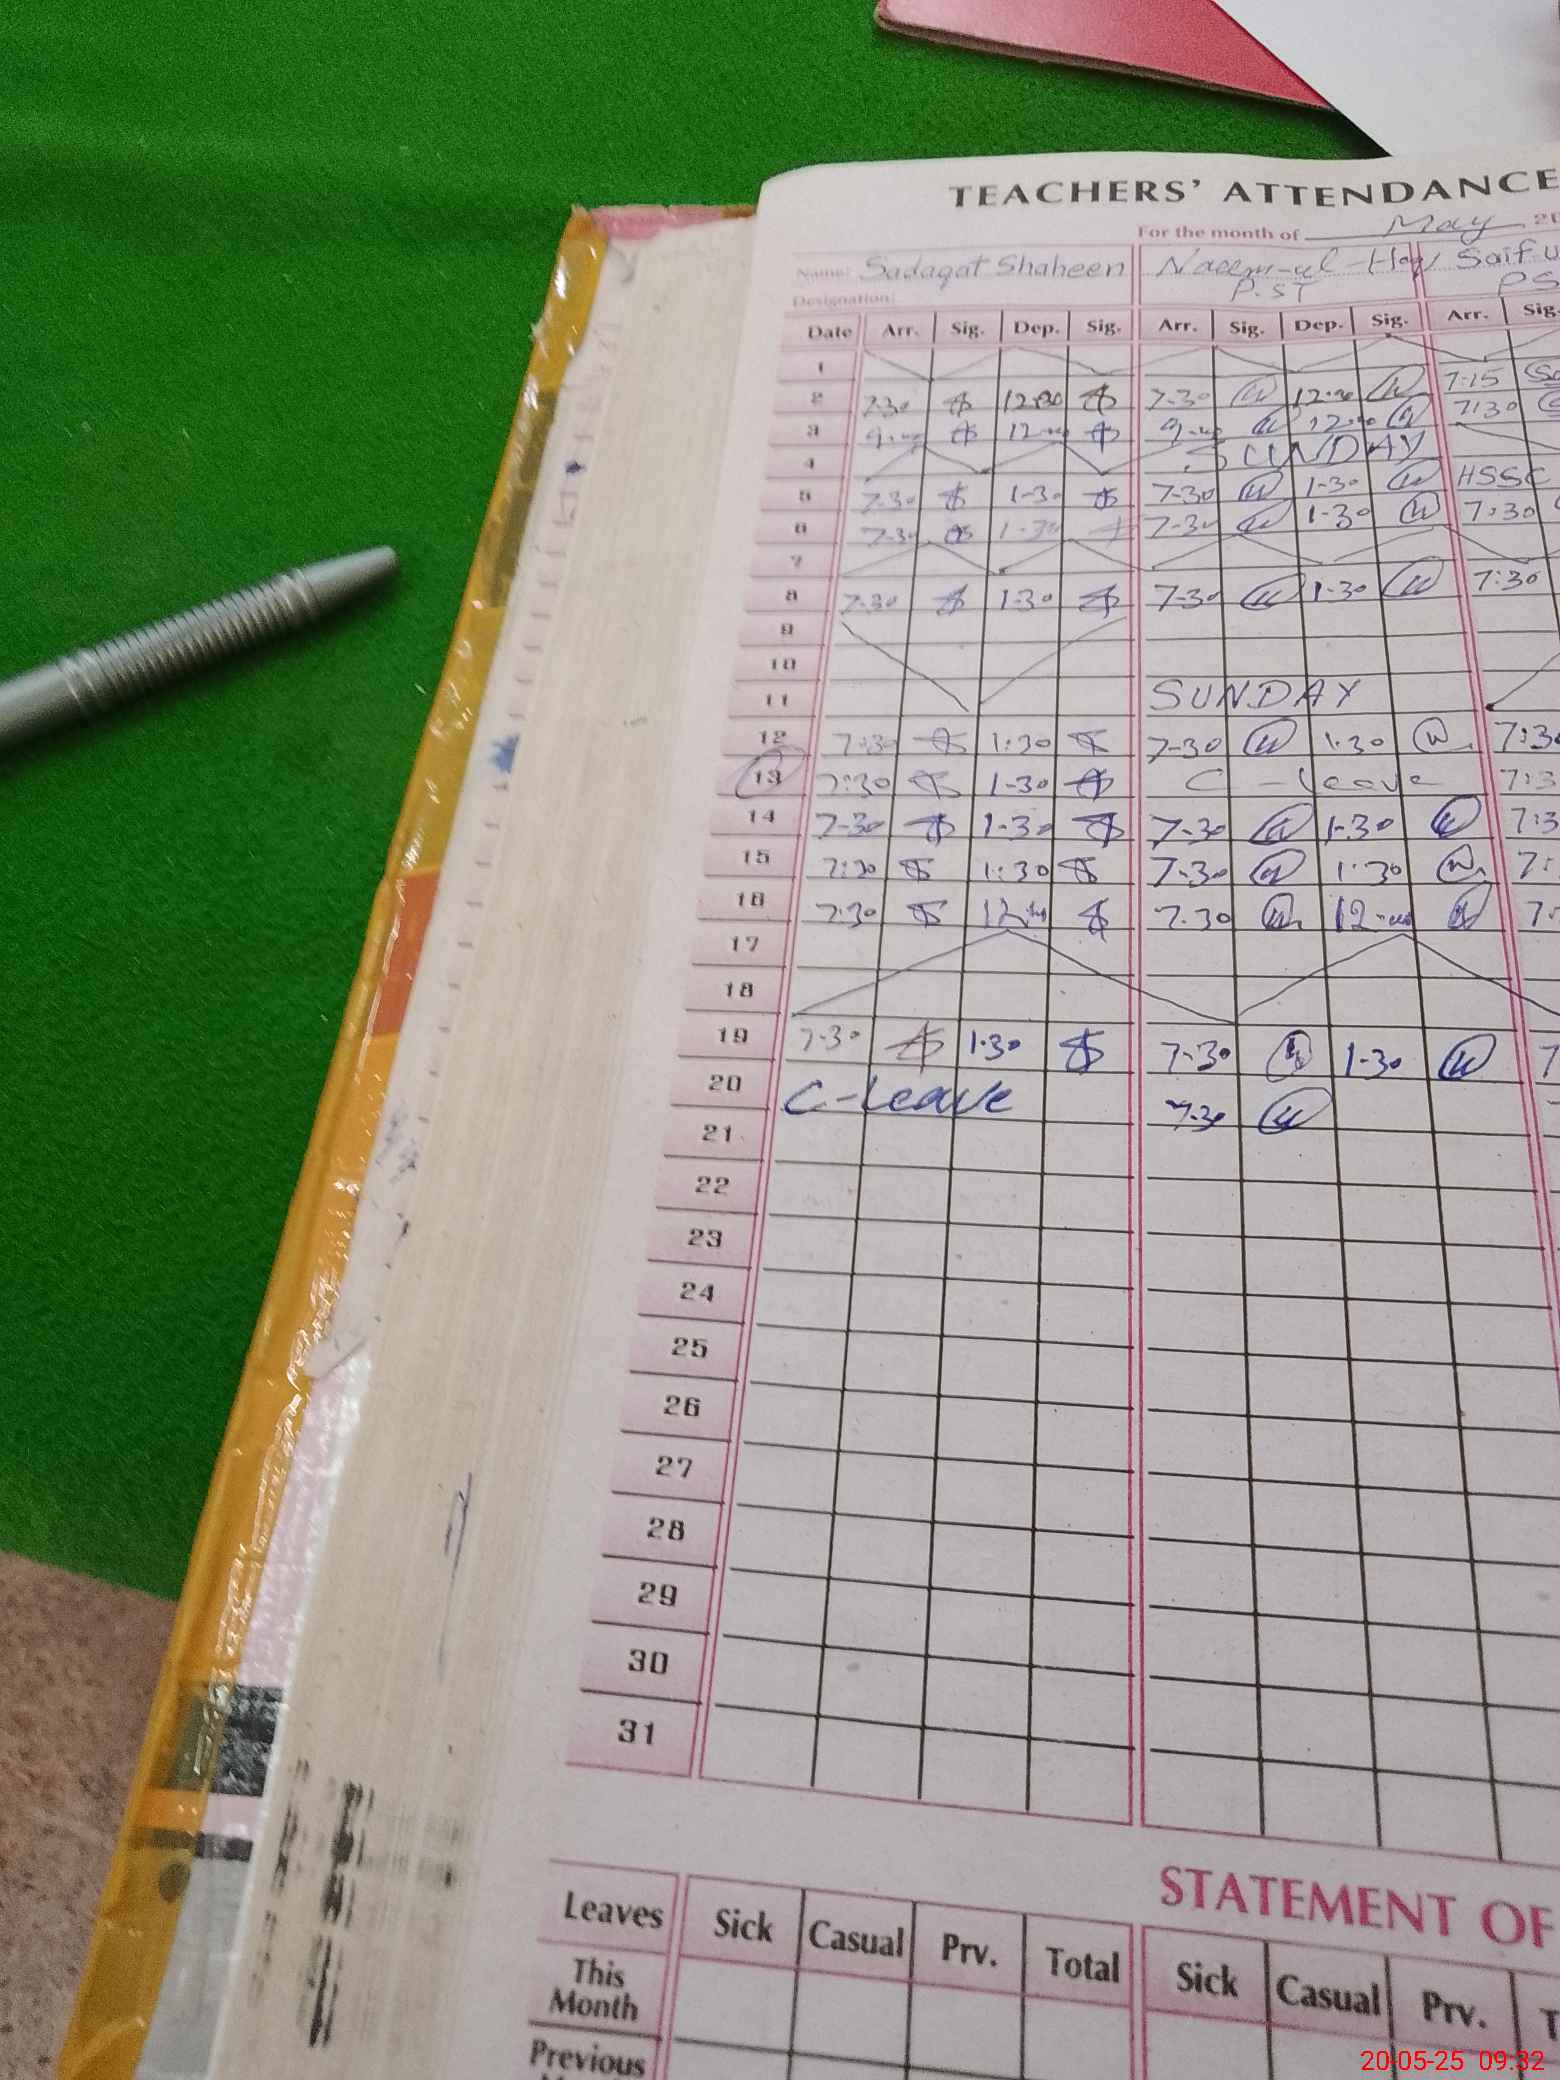 TEACHERS' ATTENDANCE
For the month of May 20
Name: Sadaqat Shaheen Naeem-ul-Haq Saif U
Designation: P.ST PS
Date Arr. Sig. Dep. Sig. Arr. Sig. Dep. Sig. Arr. Sig.
1
2 7-30 12:30 7-30 12-30 7:15
3 12 12 7:30
4 SUNDAY
5 7-30 1-30 7-30 1-30 HSSC
6 7-30 1-30 7-30 1-30 7:30
7
8 7-30 1-30 7-30 1-30 7:30
9
10
11 SUNDAY
12 7:30 1:30 7-30 1-30 7:30
13 7:30 1-30 C-leave 7:3
14 7-30 1-30 7-30 1-30 7:3
15 7:30 1:30 7-30 1:30 7:
16 7:30 12 7.30 12 7
17
18
19 7-30 1-30 7-30 1-30 7
20 C-leave 7-30
21
22
23
24
25
26
27
28
29
30
31
STATEMENT OF
Leaves Sick Casual Prv. Total Sick Casual Prv. T
This Month
Previous
20-05-25 09:32